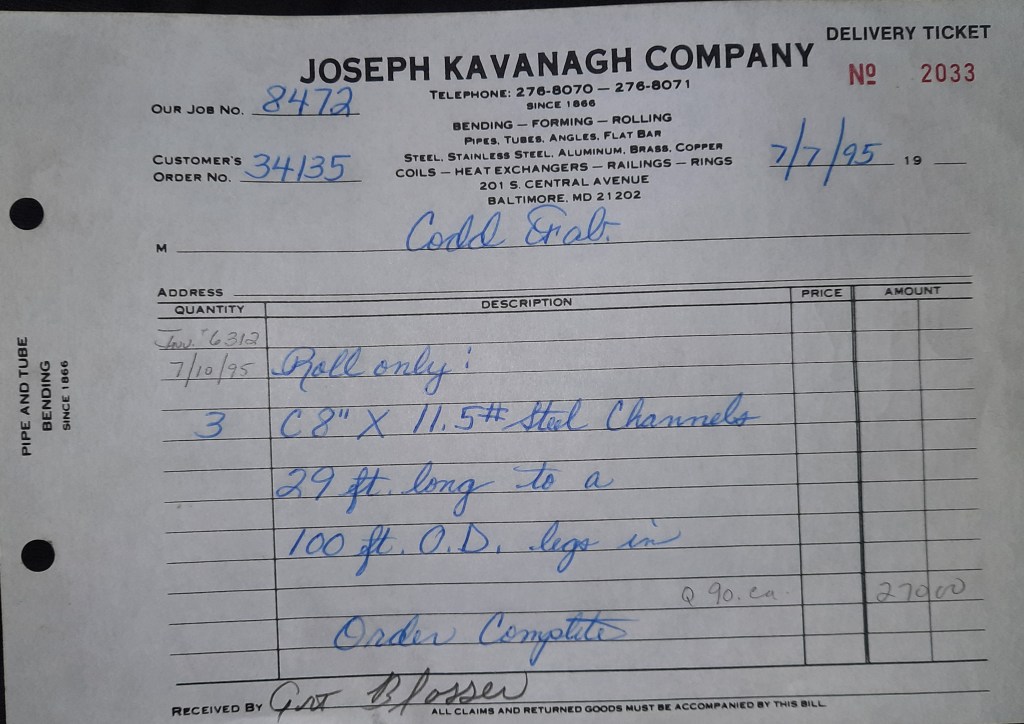 DELIVERY TICKET
JOSEPH KAVANAGH COMPANY
Nº 2033
TELEPHONE: 276-8070 — 276-8071
SINCE 1866
OUR JOB NO. 8472
BENDING — FORMING — ROLLING
PIPES, TUBES, ANGLES, FLAT BAR
STEEL, STAINLESS STEEL, ALUMINUM, BRASS, COPPER
COILS — HEAT EXCHANGERS — RAILINGS — RINGS
201 S. CENTRAL AVENUE
BALTIMORE, MD 21202
CUSTOMER'S
ORDER NO. 34135
7/7/95 19
M Codd Fab.
ADDRESS
QUANTITY DESCRIPTION PRICE AMOUNT
Inv. #6312
7/10/95 Roll only:
3 C 8" X 11.5# Steel Channels
29 ft. long to a
100 ft. O.D. legs in
@ 90. ea. 270 00
Order Complete
RECEIVED BY Blosser
ALL CLAIMS AND RETURNED GOODS MUST BE ACCOMPANIED BY THIS BILL
PIPE AND TUBE
BENDING
SINCE 1866